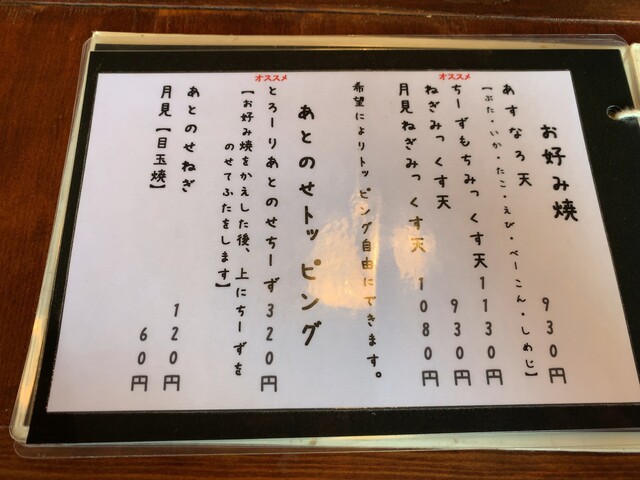 お好み焼
あすなろ天 930円
【ぶた・いか・たこ・えび・べーこん・しめじ】
オススメ
ちーずもちみっくす天 1130円
ねぎみっくす天 930円
月見ねぎみっくす天 1080円
希望によりトッピング自由にできます。
あとのせトッピング
オススメ
とろーりあとのせちーず 320円
【お好み焼をかえした後、上にちーずを
のせてふたをします】
あとのせねぎ 120円
月見【目玉焼】 60円